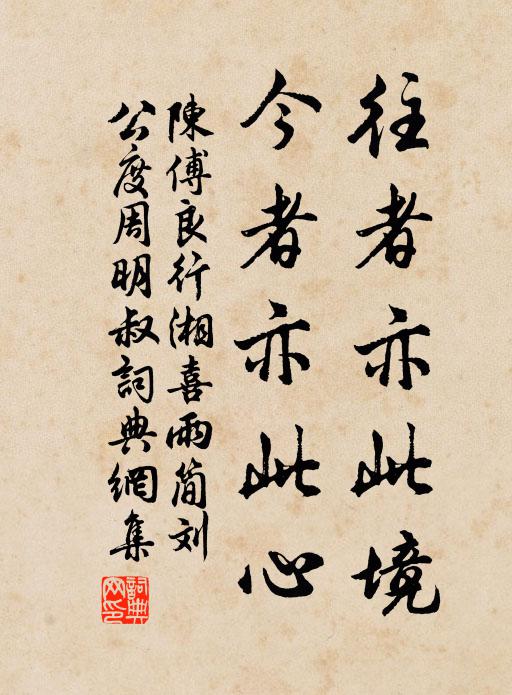 往者亦此境
今者亦此心
陳傅良行湘喜雨簡刘
公度周明叔詞典網集
詞典网印